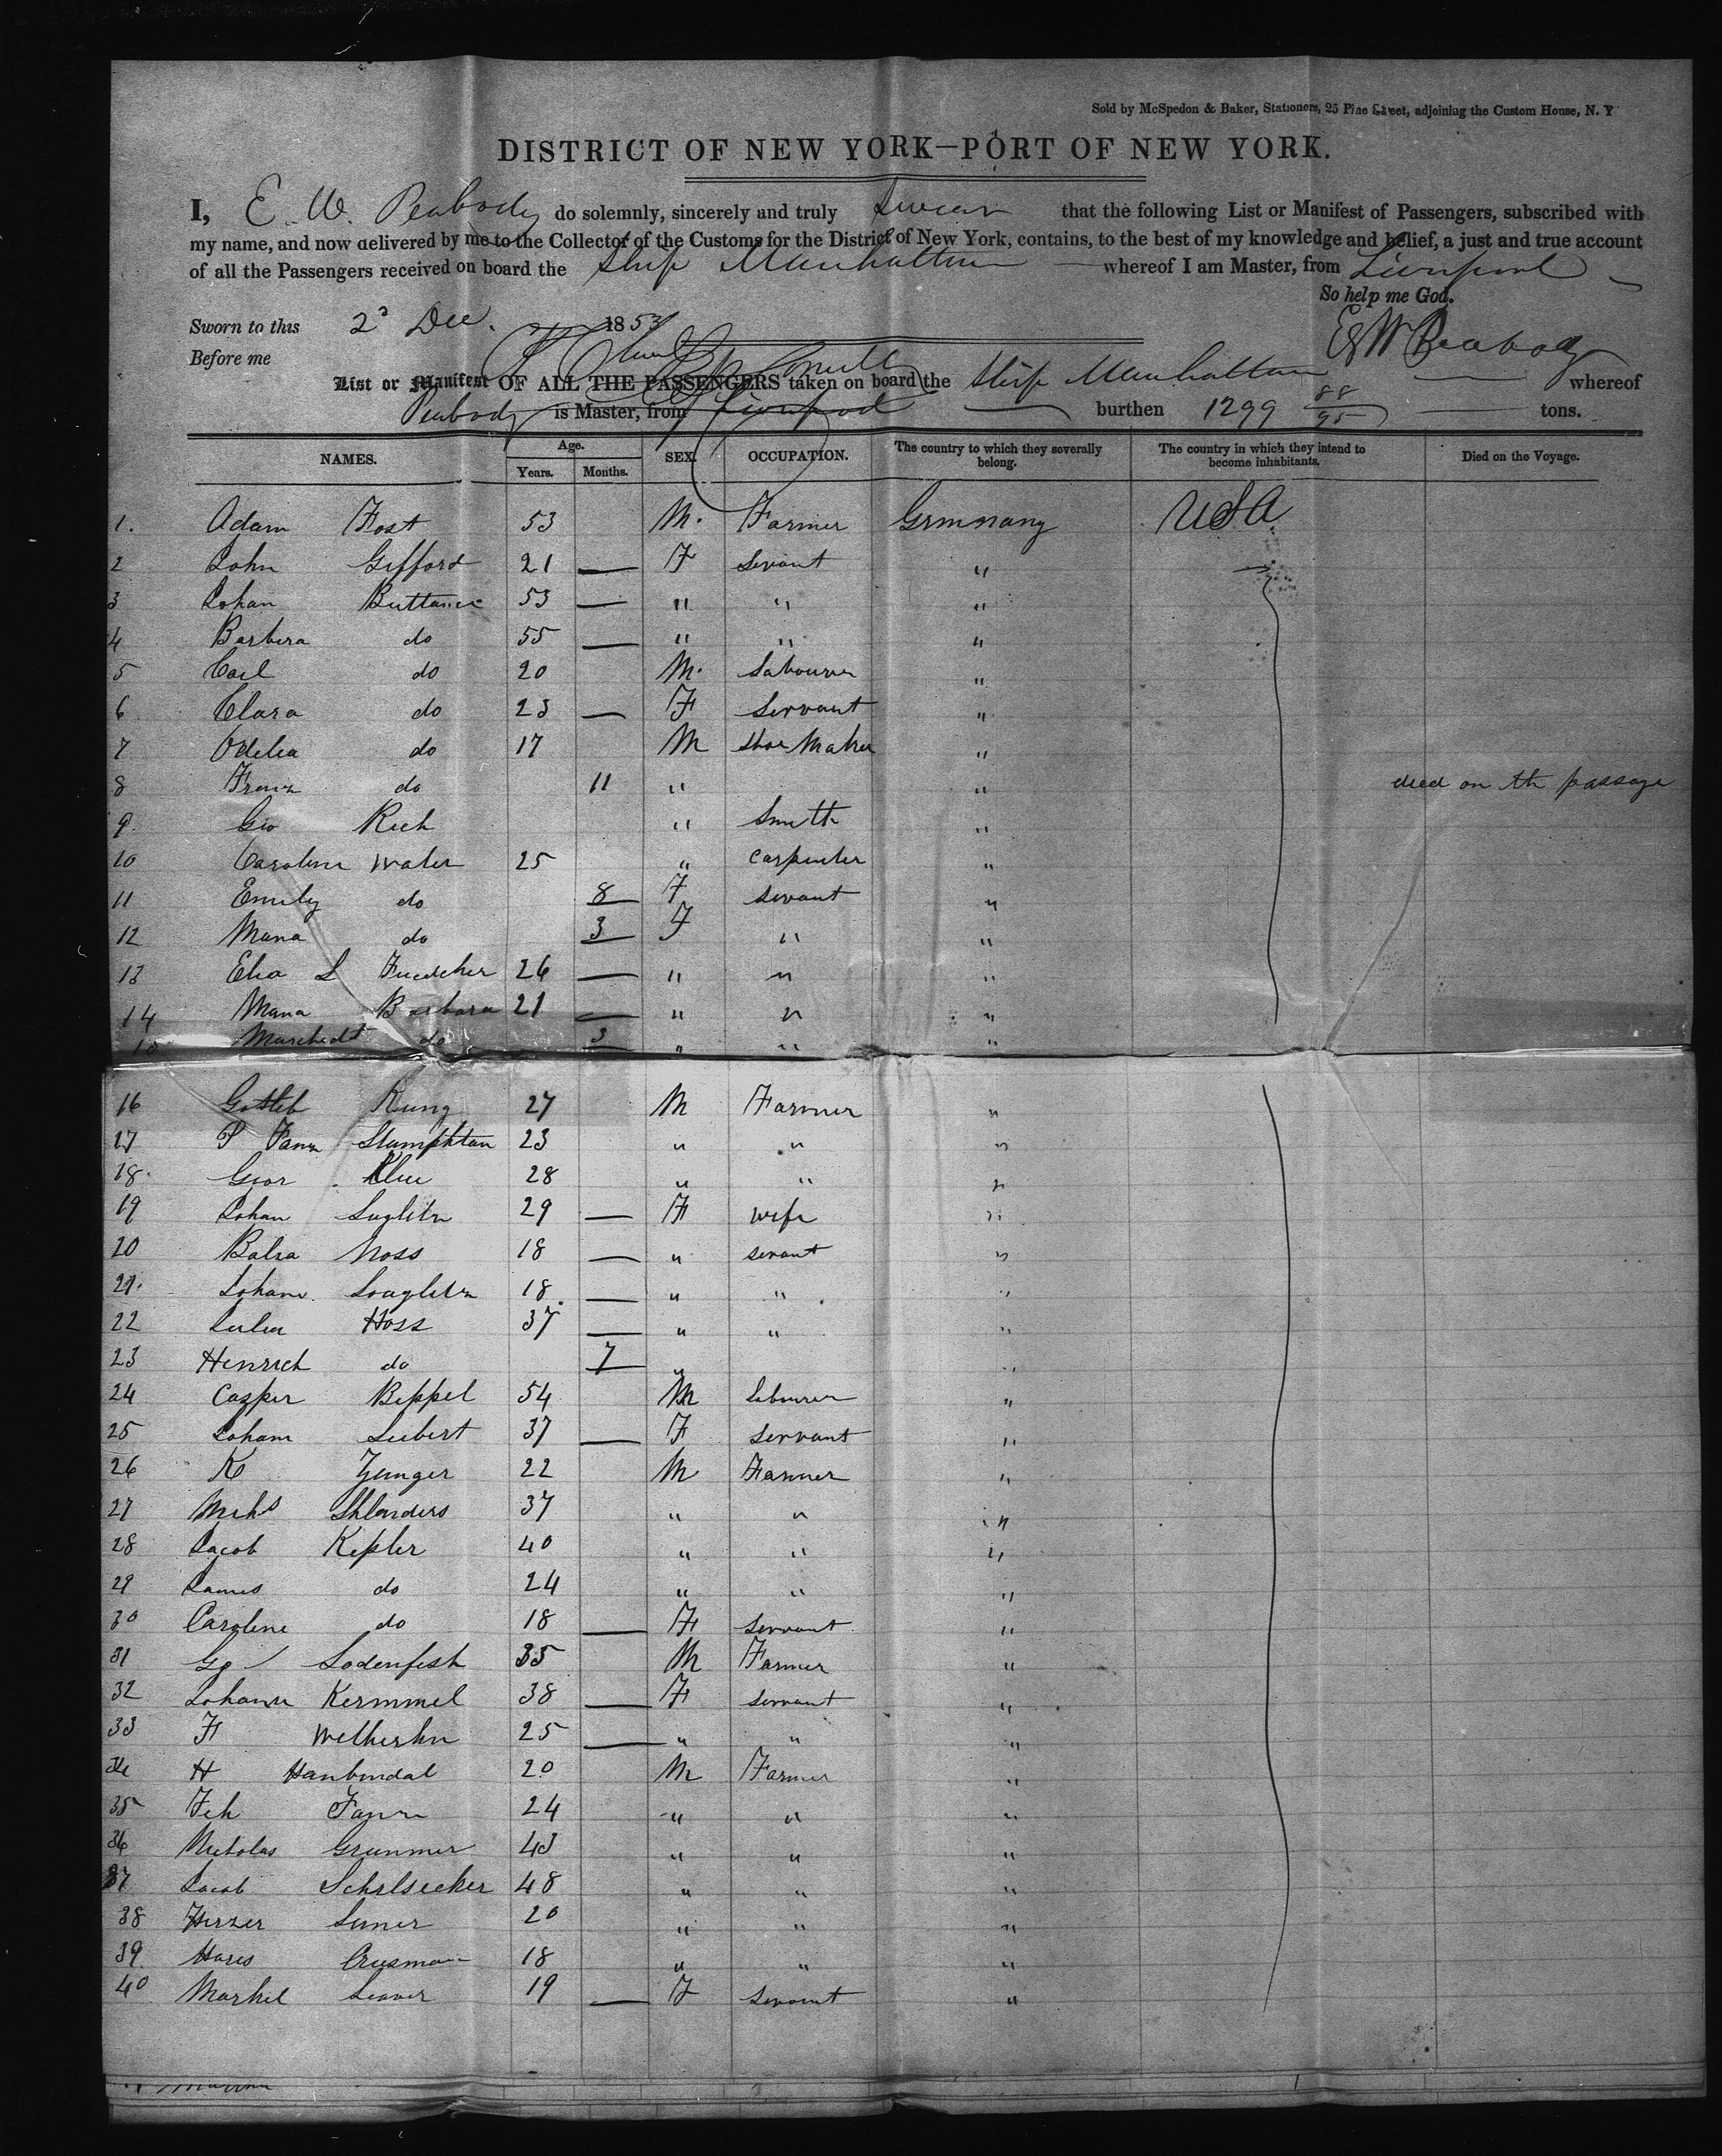 Sold by McSpedon & Baker, Stationers, 25 Pine Street, adjoining the Custom House, N. Y
DISTRICT OF NEW YORK—PORT OF NEW YORK.
I, E. W. Peabody do solemnly, sincerely and truly swear that the following List or Manifest of Passengers, subscribed with
my name, and now delivered by me to the Collector of the Customs for the District of New York, contains, to the best of my knowledge and belief, a just and true account
of all the Passengers received on board the Ship Manhattan whereof I am Master, from Liverpool
So help me God.
Sworn to this 2d Dec. 1853
E W Peabody
Before me
List or Manifest OF ALL THE PASSENGERS taken on board the Ship Manhattan whereof
Peabody is Master, from Liverpool burthen 1299 88/95 tons.
NAMES. Age. Years. Months. SEX. OCCUPATION. The country to which they severally belong. The country in which they intend to become inhabitants. Died on the Voyage.
1. Adam Fost 53 M. Farmer Germany USA
2 John Gifford 21 — F Servant "
3 Johan 53 — " " "
4 Barbera do 55 — " " "
5 Carl do 20 M. Labourer "
6 Clara do 23 — F Servant "
7 Odelia do 17 M Shoe Maker "
8 Franz do 11 " " died on th passage
9. Geo Rich " Smith "
10 Caroline Water 25 " Carpenter "
11 Emily do 8 F Servant "
12 Maria do 3 F " "
13 Elia L 26 — " " "
14 Maria Barbara 21 — " " "
15 do 3 " " "
16 Gottleb Kung 27 M Farmer "
17 P Stumphtan 23 " " "
18. Geor Klee 28 " " "
19 Johan 29 — F wife "
20 Balra Noss 18 — " Servant "
21. Johann 18 — " " "
22 Julia Hoss 37 — " " "
23 Henrich do 7 " "
24 Casper Beppel 54 M Labourer "
25 Johann Leibert 37 — F Servant "
26 K Zunger 22 M Farmer "
27 Shlanders 37 " " "
28 Jacob Kepler 40 " " "
29 James do 24 " " "
30 Caroline do 18 — F Servant "
31 Gg Lodenfish 35 M Farmer "
32 Johann Kermmel 38 — F Servant "
33 F 25 — " " "
34 H Hanbendal 20 M Farmer "
35 24 " " "
36 Nicholas Grummer 43 " " "
37 Jacob Schelsecker 48 " " "
38 Herzer 20 " " "
39. Hares Crusman 18 " " "
40 Markel 19 — F Servant "